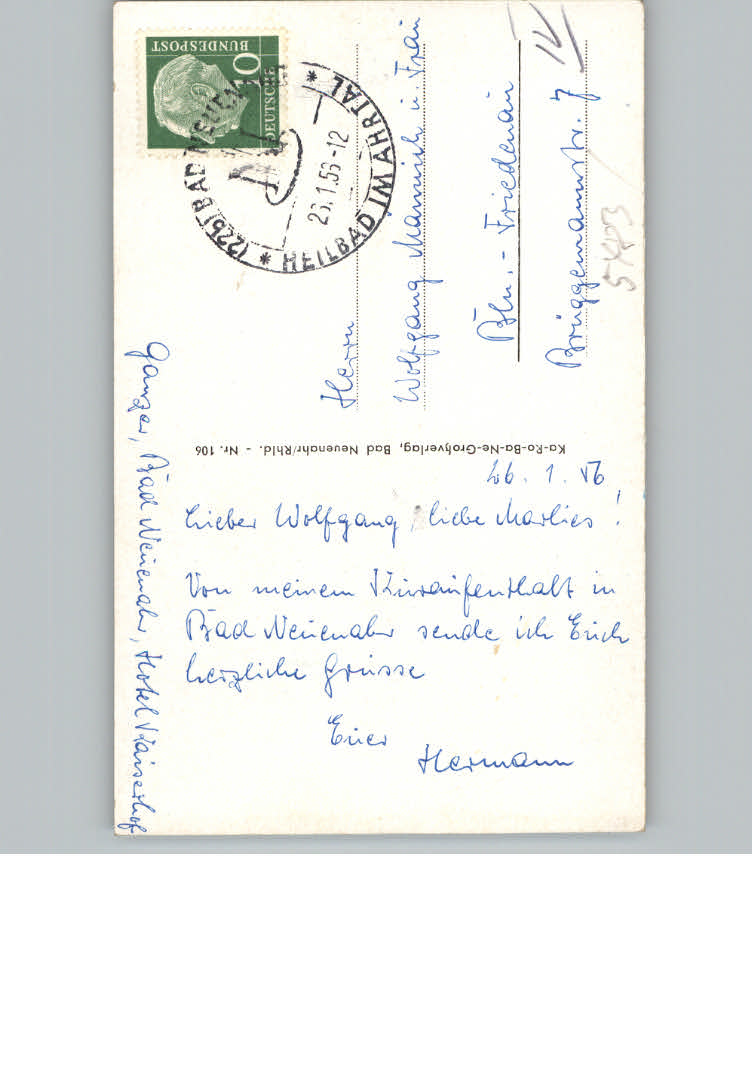 DEUTSCHE
BUNDESPOST
(22b) BAD NEUEN
* HEILBAD IM AHRTAL *
26.1.56-12
Herrn
Wolfgang Mannich u. Frau
Bln.-Friedenau
Brüggemannstr. 7
Ka-Ro-Ba-Ne-Großverlag, Bad Neuenahr/Rhld. - Nr. 106
26. 1. 56
Lieber Wolfgang, liebe Marlies!
Von meinem Kuraufenthalt in
Bad Neuenahr sende ich Euch
herzliche Grüsse
Euer
Hermann
Ganzer, Bad Neuenahr, Hotel Kaiserhof